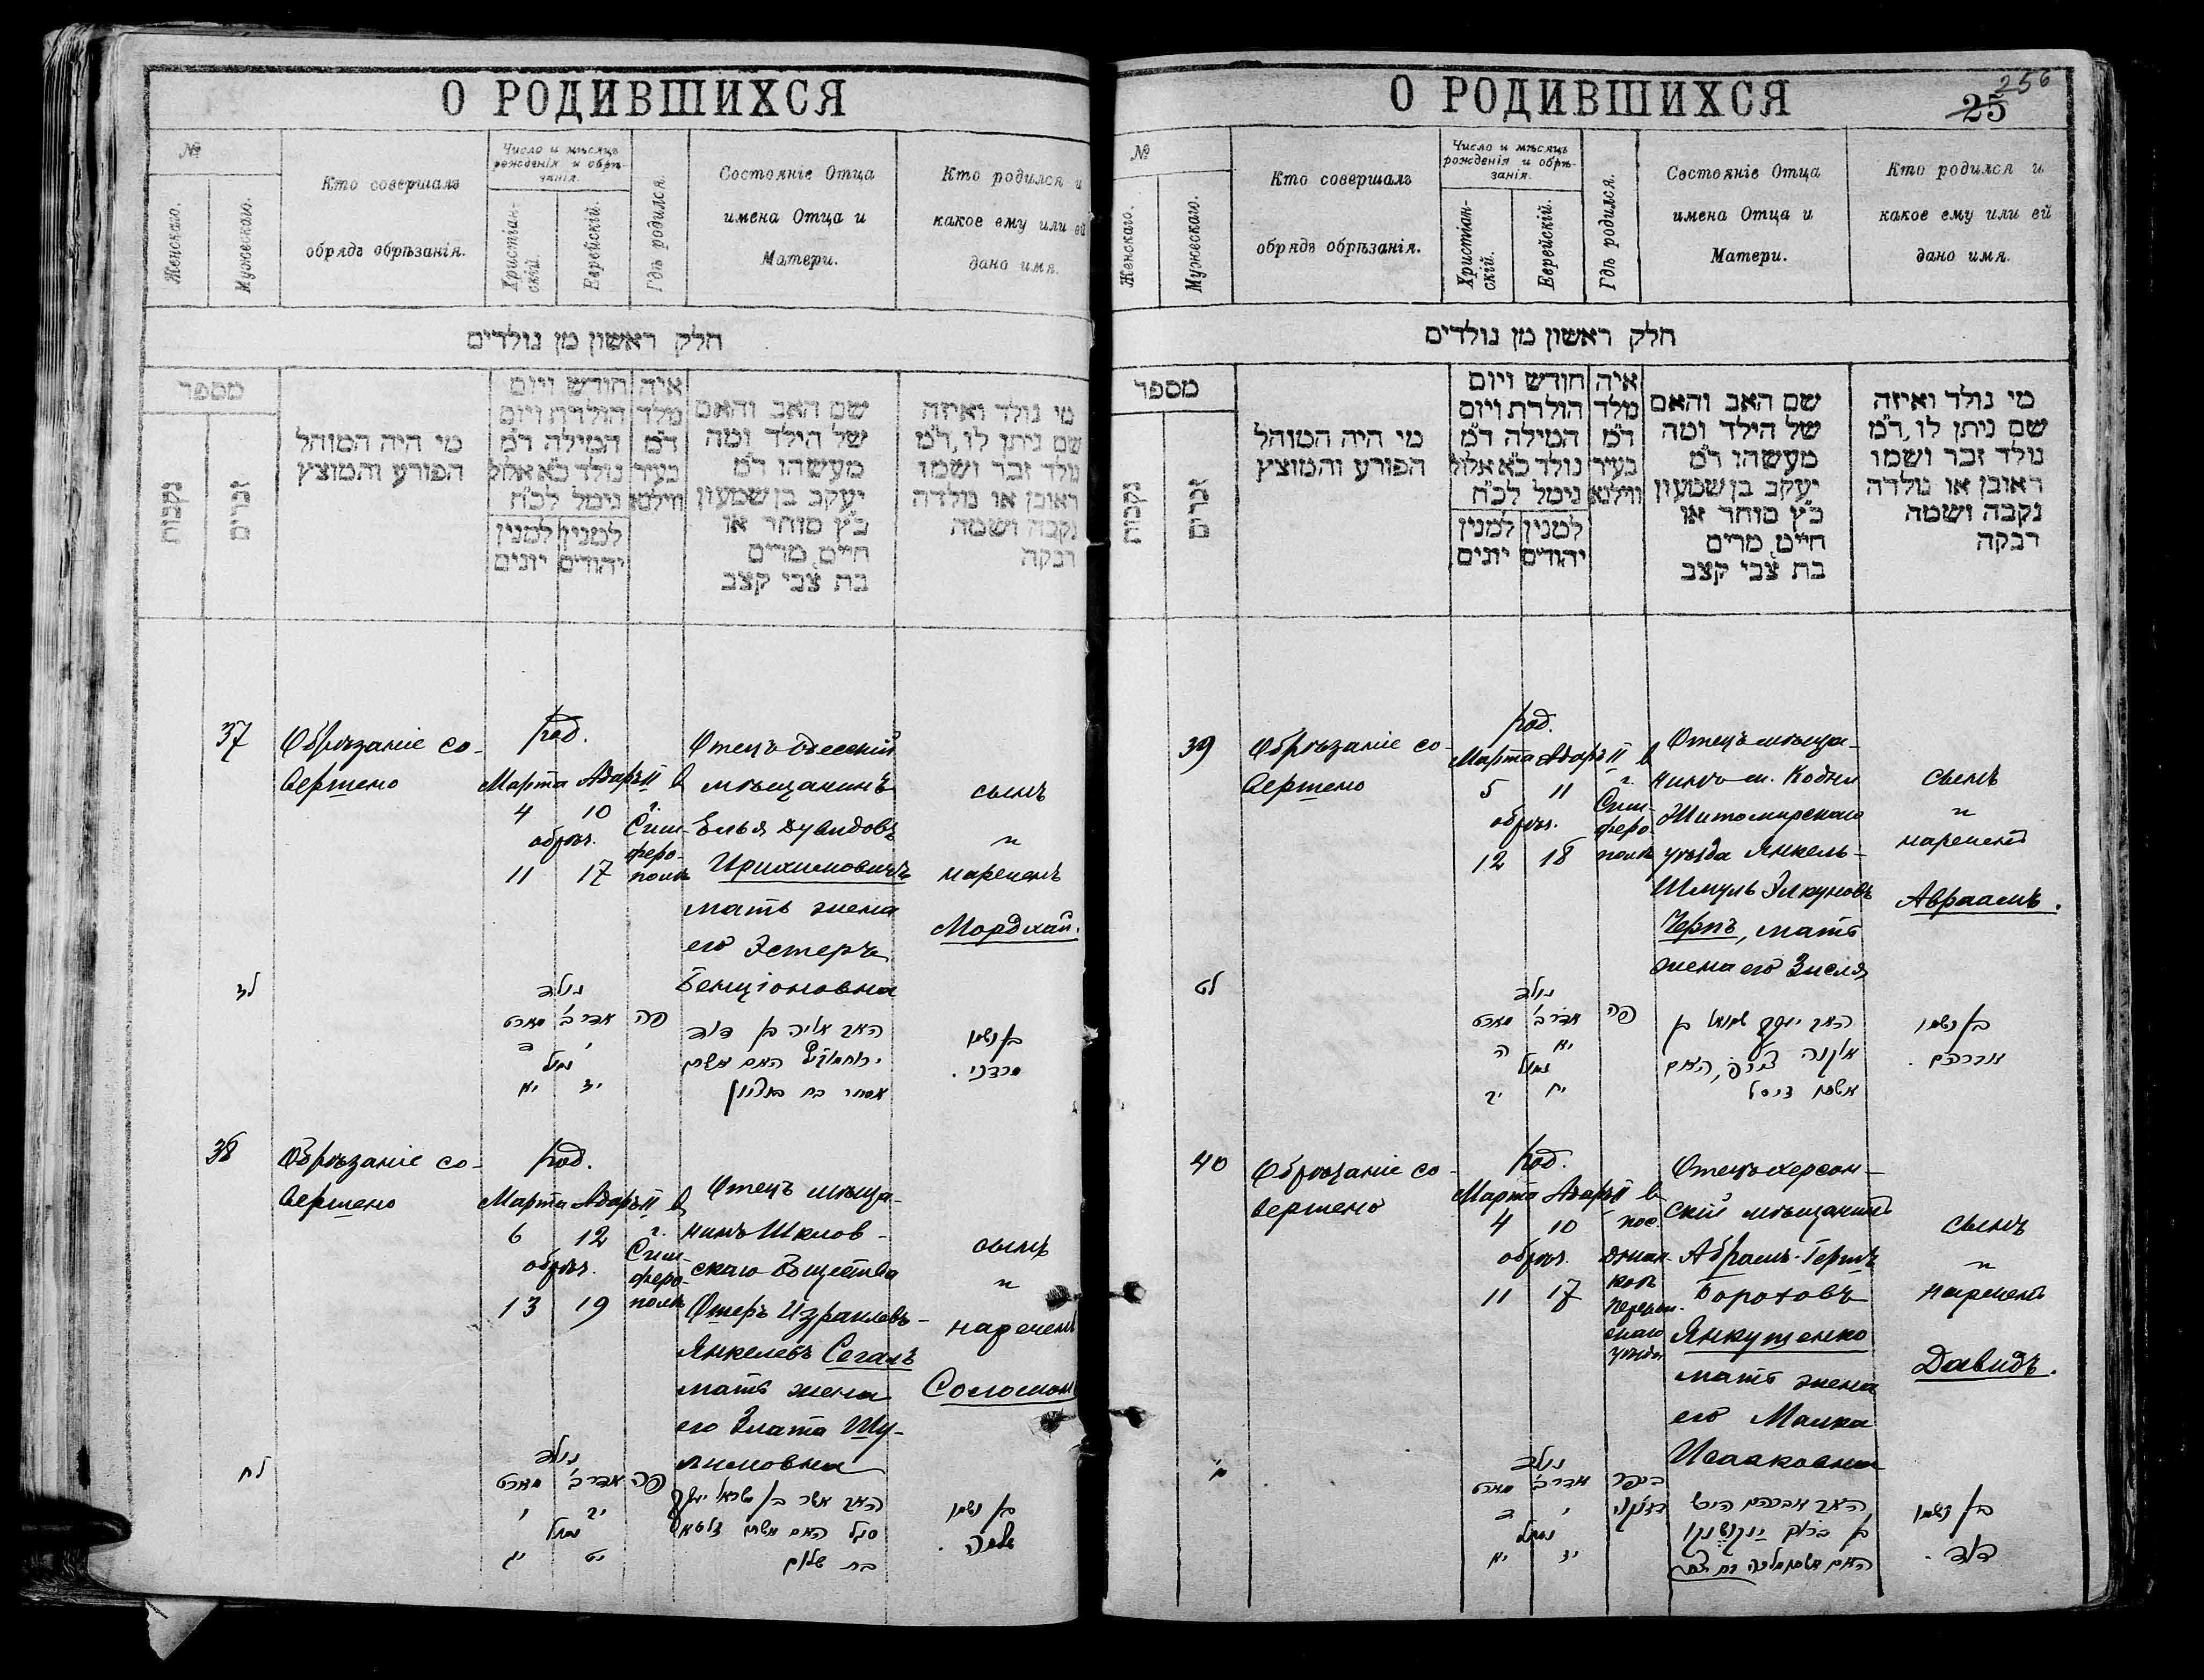 О РОДИВШИХСЯ
№
Женскаго.
Мужескаго.
Кто совершалъ
обрядъ обрѣзанія.
Число и мѣсяцъ
рожденія и обрѣ-
занія.
Христіан-
скій.
Еврейскій.
Гдѣ родился.
Состояніе Отца
имена Отца и
Матери.
Кто родился и
какое ему или ей
дано имя.
חלק ראשון מן נולדים
מספר
נקבות
זכרים
מי היה המוהל
הפורע והמוצץ
חודש ויום
הולדת ויום
המילה ד"מ
נולד כ"א אלול
נימל לכ"ח
למנין למנין
יהודים יונים
איה
מלד
ד"מ
בעיר
ווילנא
שם האב והאם
של הילד ומה
מעשהו ד"מ
יעקב בן שמעון
כ"ץ סוחר או
חייט, מרים
בת צבי קצב
מי נולד ואיזה
שם ניתן לו, ד"מ
נולד זכר ושמו
ראובן או נולדה
נקבה ושמה
רבקה
37
Обрѣзаніе со-
вершено
род.
Марта Адаръ II
4 10
обрѣз.
11 17
в
г.
Сим-
феро-
полѣ
Отецъ одесскій
мѣщанинъ
Элья Дувидовъ
Ирихимовичъ
мать жена
его Эстеръ
Бенціоновна
сынъ
и
нареченъ
Мордхай.
לז
נולד
אדר ב' מארט
י ד
נמול
יז יא
פה
האב אליה בן דוד
האם אשתו
אסתר בת בנציון
בן ושמו
מרדכי .
38
Обрѣзаніе со-
вершено
род.
Марта Адаръ II
6 12
обрѣз.
13 19
в
г.
Сим-
феро-
полѣ
Отецъ мѣща-
нинъ Шклов-
скаго Общества
Ошеръ Израилевъ-
Янкелевъ Сегалъ
мать жена
его Злата Шу-
лимовна
сынъ
и
нареченъ
Соломон
לח
נולד
אדר ב' מארט
יב ו
נמול
יט יג
פה
האב אשר בן ישראל יעקב
סגל האם אשתו זלטא
בת שלום
בן ושמו
שלמה .
О РОДИВШИХСЯ
256
25
№
Женскаго.
Мужескаго.
Кто совершалъ
обрядъ обрѣзанія.
Число и мѣсяцъ
рожденія и обрѣ-
занія.
Христіан-
скій.
Еврейскій.
Гдѣ родился.
Состояніе Отца
имена Отца и
Матери.
Кто родился и
какое ему или ей
дано имя.
חלק ראשון מן נולדים
מספר
נקבות
זכרים
מי היה המוהל
הפורע והמוצץ
חודש ויום
הולדת ויום
המילה ד"מ
נולד כ"א אלול
נימל לכ"ח
למנין למנין
יהודים יונים
איה
מלד
ד"מ
בעיר
ווילנא
שם האב והאם
של הילד ומה
מעשהו ד"מ
יעקב בן שמעון
כ"ץ סוחר או
חייט, מרים
בת צבי קצב
מי נולד ואיזה
שם ניתן לו, ד"מ
נולד זכר ושמו
ראובן או נולדה
נקבה ושמה
רבקה
39
Обрѣзаніе со-
вершено
род.
Марта Адаръ II
5 11
обрѣз.
12 18
в
г.
Сим-
феро-
полѣ
Отецъ мѣща-
нинъ м. Кодни
Житомирскаго
уѣзда Янкель-
Шмуль Элкуновъ
Черпъ, мать
жена его Зисля
сынъ
и
нареченъ
Авраамъ.
לט
נולד
אדר ב' מארט
יא ה
נמול
יח יב
פה
האב יעקב שמואל בן
אלקנה האם
אשתו זיסל
בן ושמו
אברהם .
40
Обрѣзаніе со-
вершено
род.
Марта Адаръ II
4 10
обрѣз.
11 17
в
пос.
Джан-
коѣ
Перекоп-
скаго
уѣзда
Отецъ херсон-
скій мѣщанинъ
Абрамъ-Гершъ
Бороховъ
Янкушенко
мать жена
его Малка
Исааковна
сынъ
и
нареченъ
Давидъ.
מ
נולד
אדר ב' מארט
י ד
נמול
יז יא
בכפר
האב אברהם הירש
בן ברוך ינקושנקו
האם אשתו מלכה בת יצחק
בן ושמו
דוד .